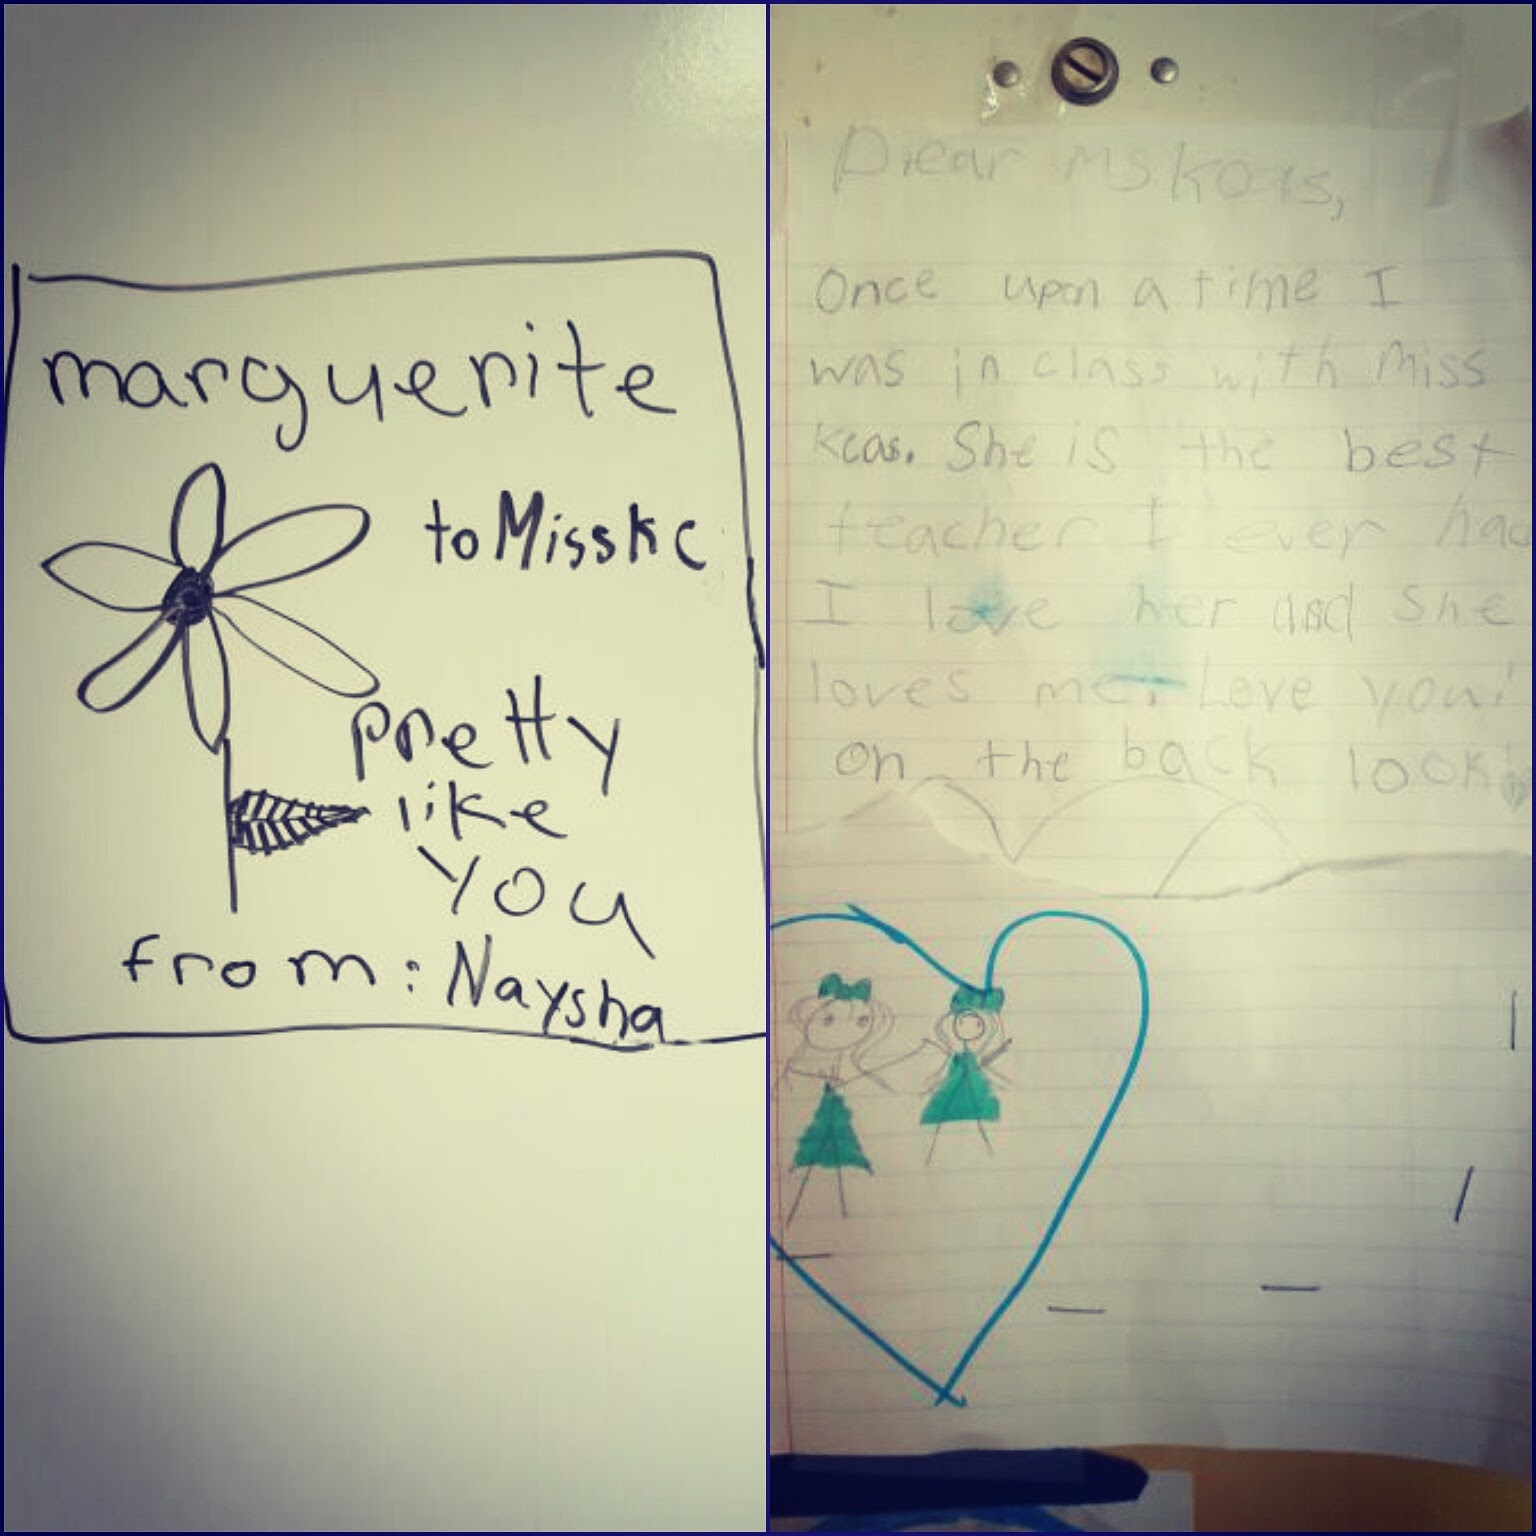 marguerite
to Miss kc
pretty
like
you
from: Naysha
Dear Ms Keas,
Once upon a time I
was in class with Miss
Keas. She is the best
teacher I ever had
I love her and She
loves me. Love you!
on the back look!